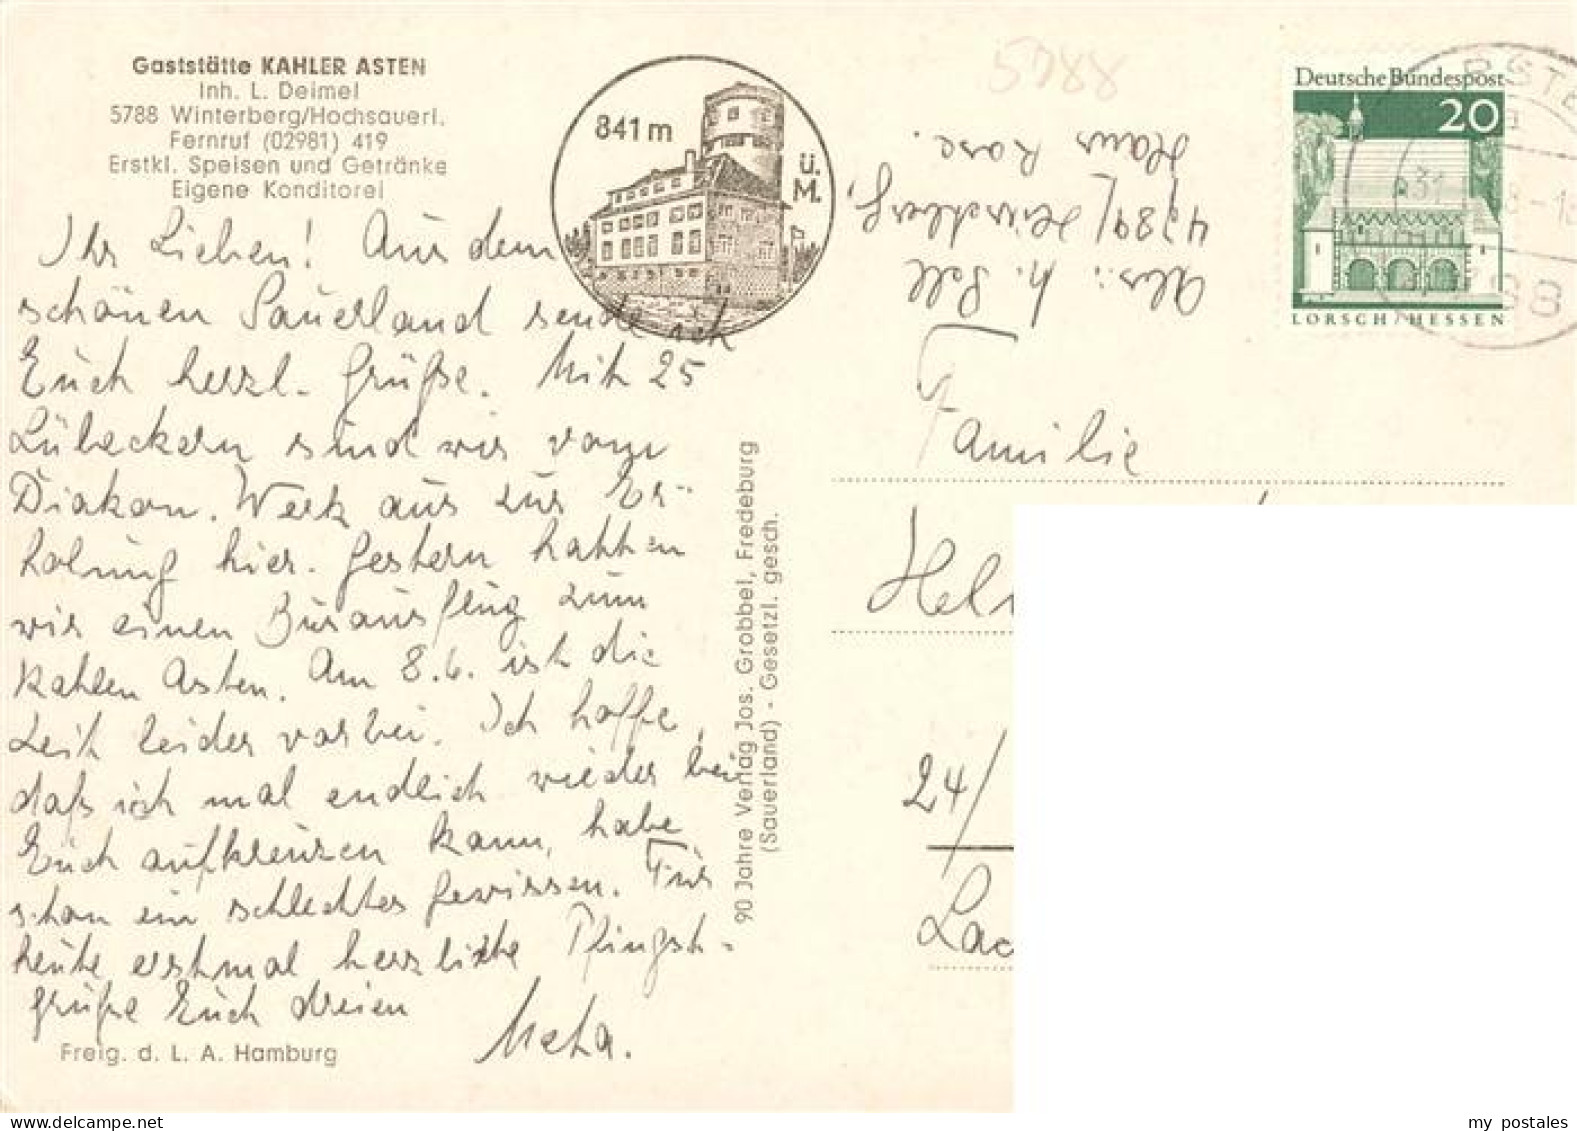 Gaststätte KAHLER ASTEN
Inh. L. Deimel
5788 Winterberg/Hochsauerl.
Fernruf (02981) 419
Erstkl. Speisen und Getränke
Eigene Konditorei
841 m
ü.
M.
Ihr Lieben! Aus dem
schönen Sauerland sende ich
Euch herzl. Grüße. Mit 25
Lübeckern sind wir vom
Diakon. Werk aus zur Er-
holung hier. Gestern hatten
wir einen Busausflug zum
Kahlen Asten. Am 8.6. ist die
Zeit leider vorbei. Ich hoffe,
daß ich mal endlich wieder bei
Euch aufkreuzen kann, habe
schon ein schlechtes Gewissen. Für
heute erstmal herzliche Pfingst-
grüße Euch dreien
Meta.
Freig. d. L. A. Hamburg
90 Jahre Verlag Jos. Grobbel, Fredeburg
(Sauerland) - Gesetzl. gesch.
5788
Abs.: h.
Haus Rose.
Deutsche Bundespost
20
LORSCH/HESSEN
Familie
24/